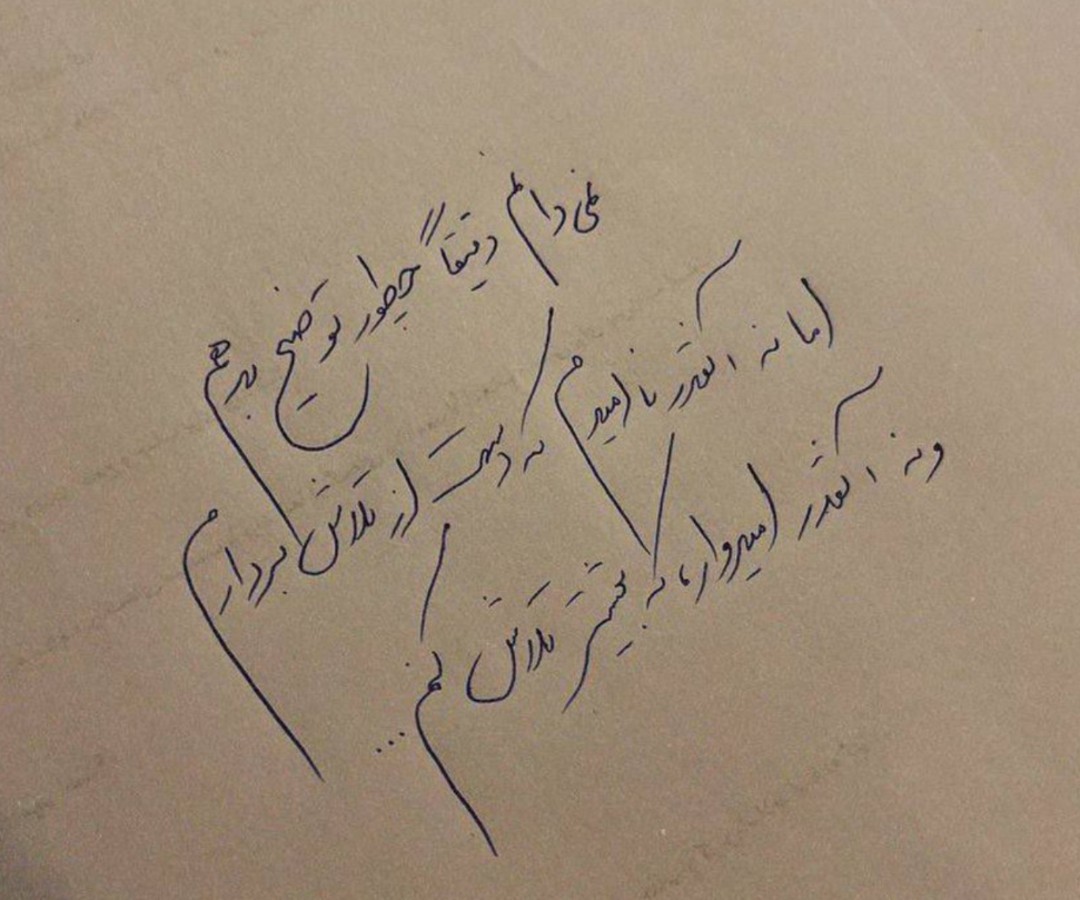 نمی دانم دقیقاً چطور توضیح بدهم
اما نه آنقدر ناامیدم که دست از تلاش بردارم
و نه آنقدر امیدوار، که بیشتر تلاش کنم...